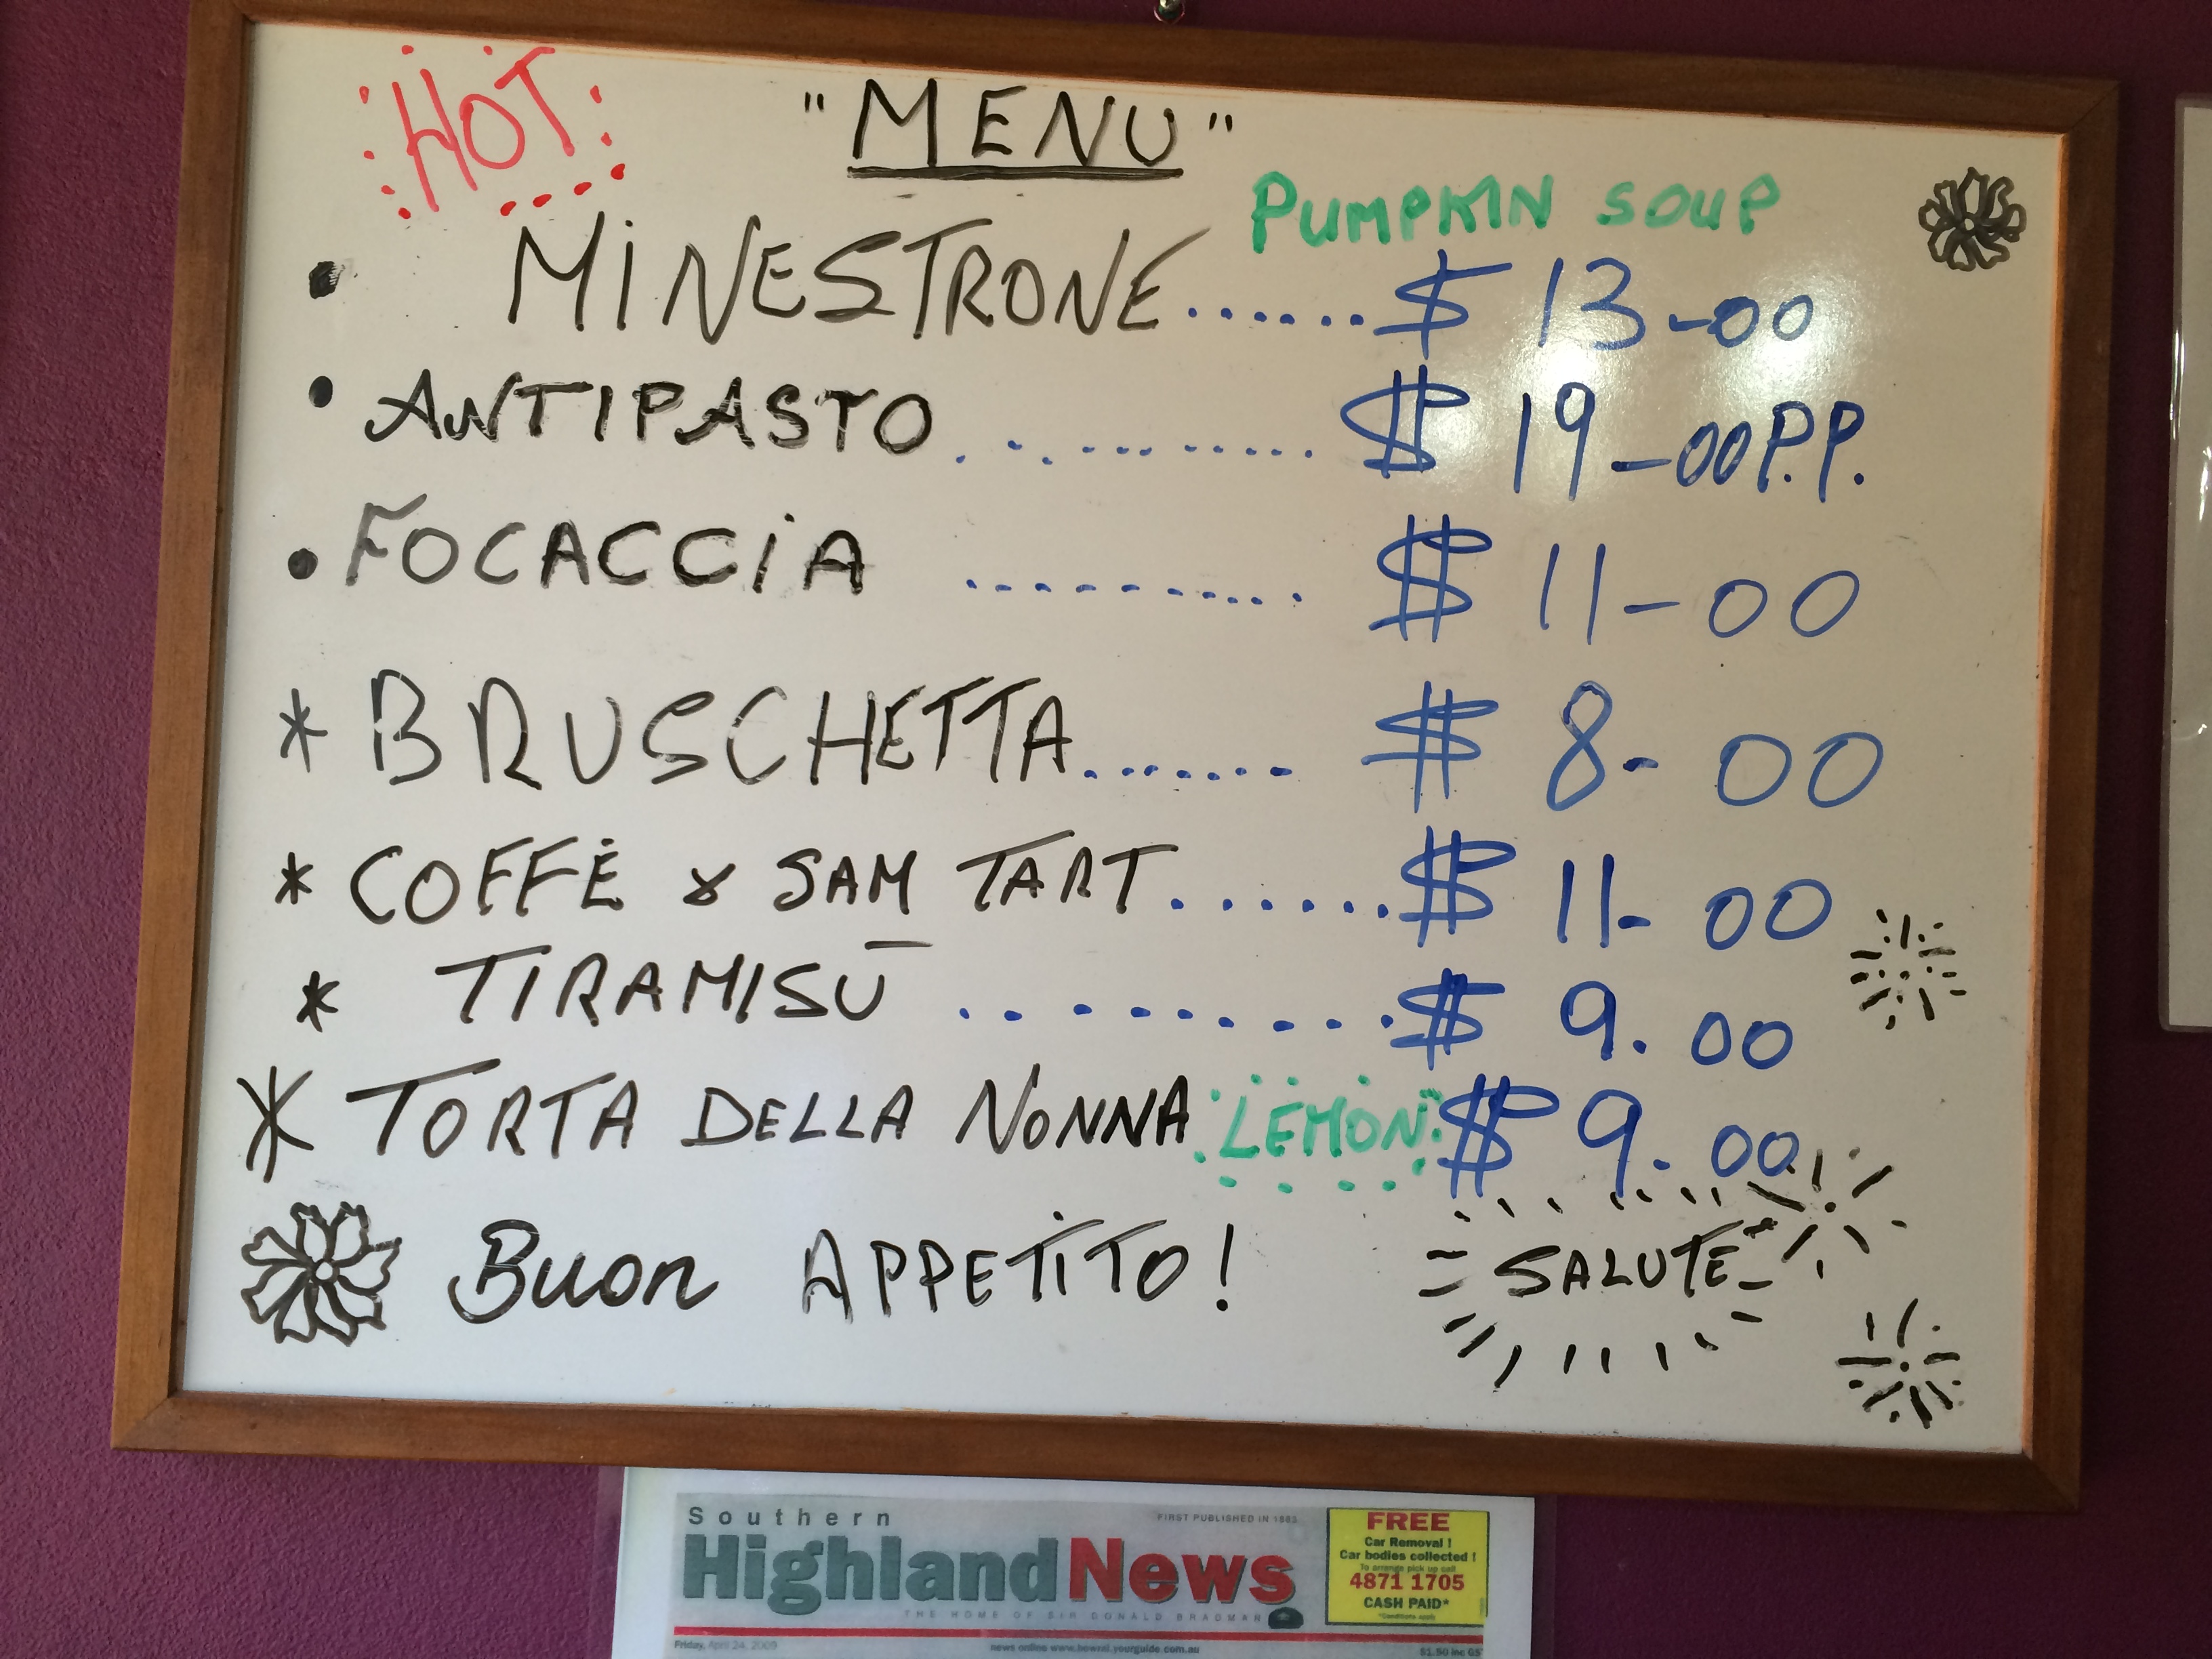 HOT
"MENU"
PUMPKIN SOUP
• MINESTRONE......$ 13-00
• ANTIPASTO ........... $ 19-00 P.P.
• FOCACCIA .......... $ 11-00
* BRUSCHETTA....... $ 8-00
* COFFÈ & SAM TART.......$ 11-00
* TIRAMISŪ ..........$ 9.00
* TORTA DELLA NONNA LEMON $ 9.00
BUON APPETITO!
SALUTE
Southern
FIRST PUBLISHED IN 1883
Highland News
THE HOME OF SIR DONALD BRADMAN
FREE
Car Removal !
Car bodies collected !
To arrange pick up call
4871 1705
CASH PAID*
*Conditions apply
Friday, April 24, 2009
news online www.bowral.yourguide.com.au
$1.50 inc GS